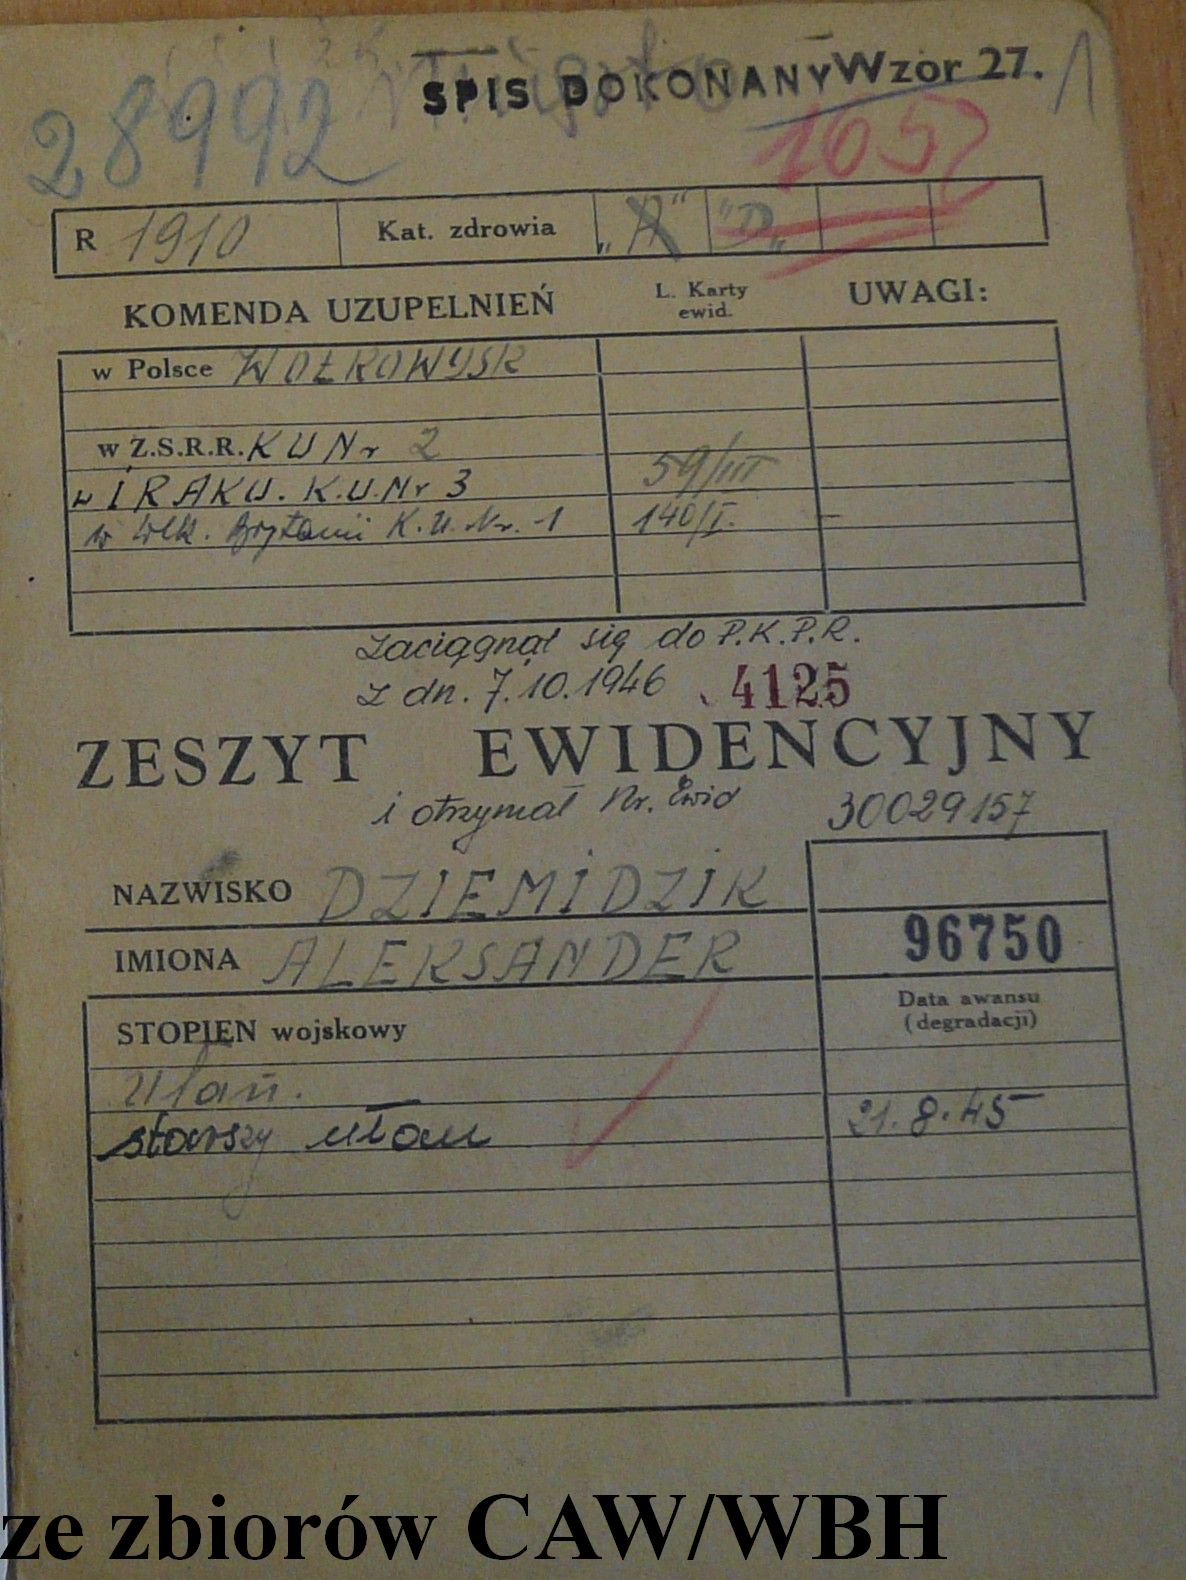 SPIS DOKONANY Wzór 27. 1
28992
1652
R 1910 Kat. zdrowia „A" „D"
KOMENDA UZUPEŁNIEŃ L. Karty ewid. UWAGI:
w Polsce WOŁKOWYSK
w Z.S.R.R. K U Nr 2
w IRAKU. K.U.Nr 3 59/III
w Wlk. Brytanii K.U.Nr. 1 140/I. –
Zaciągnął się do P.K.P.R.
z dn. 7.10.1946 4125
ZESZYT EWIDENCYJNY
i otrzymał Nr. Ewid 30029157
NAZWISKO DZIEMIDZIK
IMIONA ALEKSANDER 96750
STOPIEŃ wojskowy Data awansu (degradacji)
Ułan.
starszy ułan 21.8.45
ze zbiorów CAW/WBH